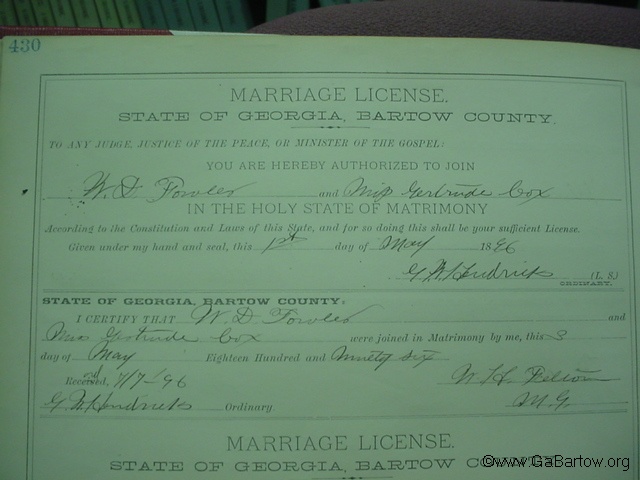 430
MARRIAGE LICENSE.
STATE OF GEORGIA, BARTOW COUNTY.
TO ANY JUDGE, JUSTICE OF THE PEACE, OR MINISTER OF THE GOSPEL:
YOU ARE HEREBY AUTHORIZED TO JOIN
W. D. Fowler and Miss Gertrude Cox
IN THE HOLY STATE OF MATRIMONY
According to the Constitution and Laws of this State, and for so doing this shall be your sufficient License.
Given under my hand and seal, this 1st day of May 1896
G W Hendricks (L. S.)
ORDINARY.
STATE OF GEORGIA, BARTOW COUNTY:
I CERTIFY THAT W. D. Fowler and
Miss Gertrude Cox were joined in Matrimony by me, this 3
day of May Eighteen Hundred and Ninety six
Received, /7-96 W. H. Felton
G W Hendricks Ordinary M.G.
MARRIAGE LICENSE.
STATE OF GEORGIA, BARTOW
©www.GaBartow.org